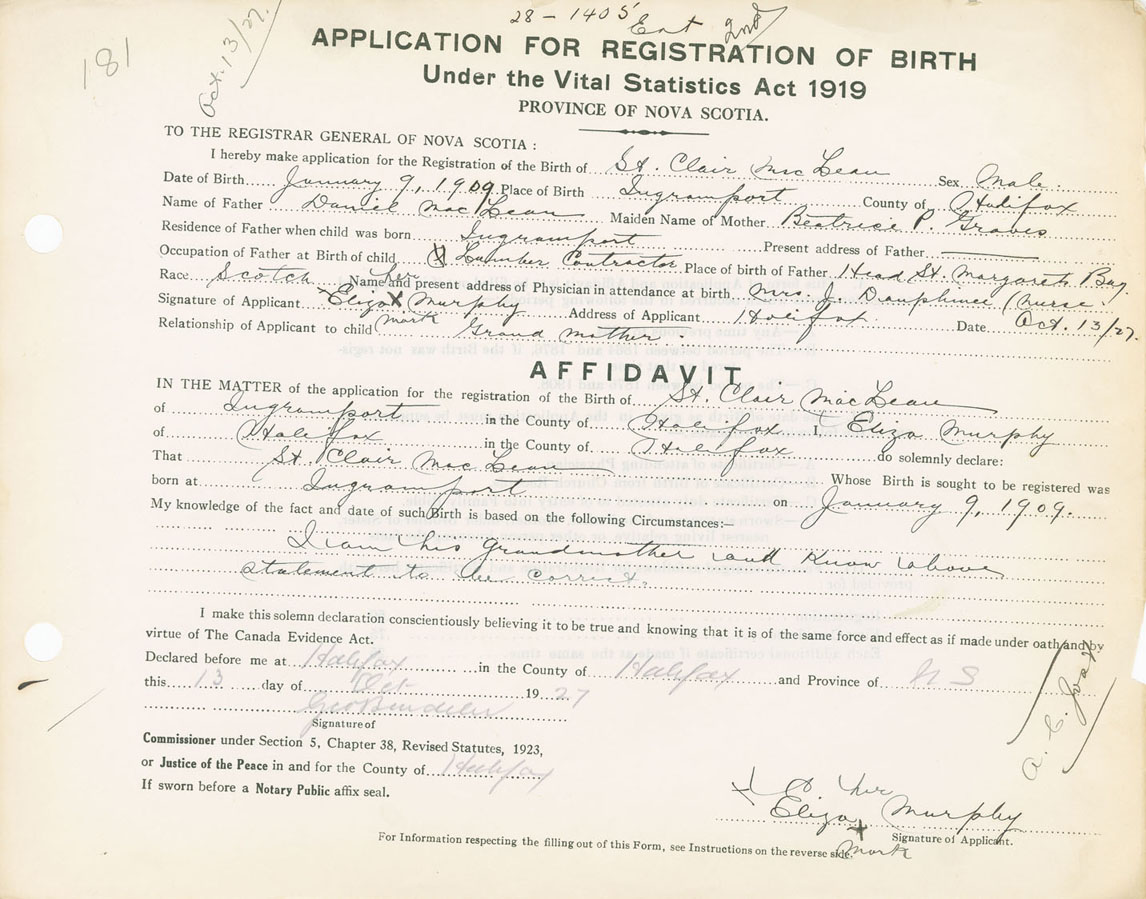 28 - 1405 Ent 2nd
181
Oct. 13/27.
APPLICATION FOR REGISTRATION OF BIRTH
Under the Vital Statistics Act 1919
PROVINCE OF NOVA SCOTIA.
TO THE REGISTRAR GENERAL OF NOVA SCOTIA :
I hereby make application for the Registration of the Birth of St. Clair MacLean Sex Male.
Date of Birth January 9, 1909 Place of Birth Ingramport County of Halifax
Name of Father Daniel MacLean Maiden Name of Mother Beatrice P. Graves
Residence of Father when child was born Ingramport Present address of Father
Occupation of Father at Birth of child Lumber Contractor Place of birth of Father Head St. Margarets Bay.
Race Scotch Name and present address of Physician in attendance at birth Mrs. J. Dauphinee (Nurse.
Signature of Applicant Eliza her X mark Murphy Address of Applicant Halifax Date Oct. 13/27.
Relationship of Applicant to child Grand mother.
AFFIDAVIT
IN THE MATTER of the application for the registration of the Birth of St. Clair MacLean
of Ingramport in the County of Halifax I, Eliza Murphy
of Halifax in the County of Halifax do solemnly declare:
That St. Clair MacLean Whose Birth is sought to be registered was
born at Ingramport on January 9, 1909.
My knowledge of the fact and date of such Birth is based on the following Circumstances:—
I am his Grandmother and Know above
statement to be correct.
I make this solemn declaration conscientiously believing it to be true and knowing that it is of the same force and effect as if made under oath and by
virtue of The Canada Evidence Act.
Declared before me at Halifax in the County of Halifax and Province of N S
this 13 day of Oct 19 27
Geo
Signature of
Commissioner under Section 5, Chapter 38, Revised Statutes, 1923,
or Justice of the Peace in and for the County of Halifax
If sworn before a Notary Public affix seal.
Eliza her X mark Murphy
Signature of Applicant.
For Information respecting the filling out of this Form, see Instructions on the reverse side.